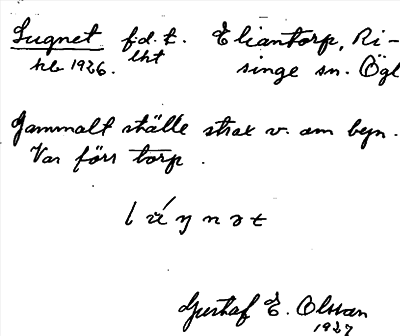 Lugnet f.d. t. Eliantorp, Ri-
lht
hb 1926. singe sn. Ögl
Gammalt ställe strax v. om byn.
Var förr torp.
Gustaf E. Olsson
1927